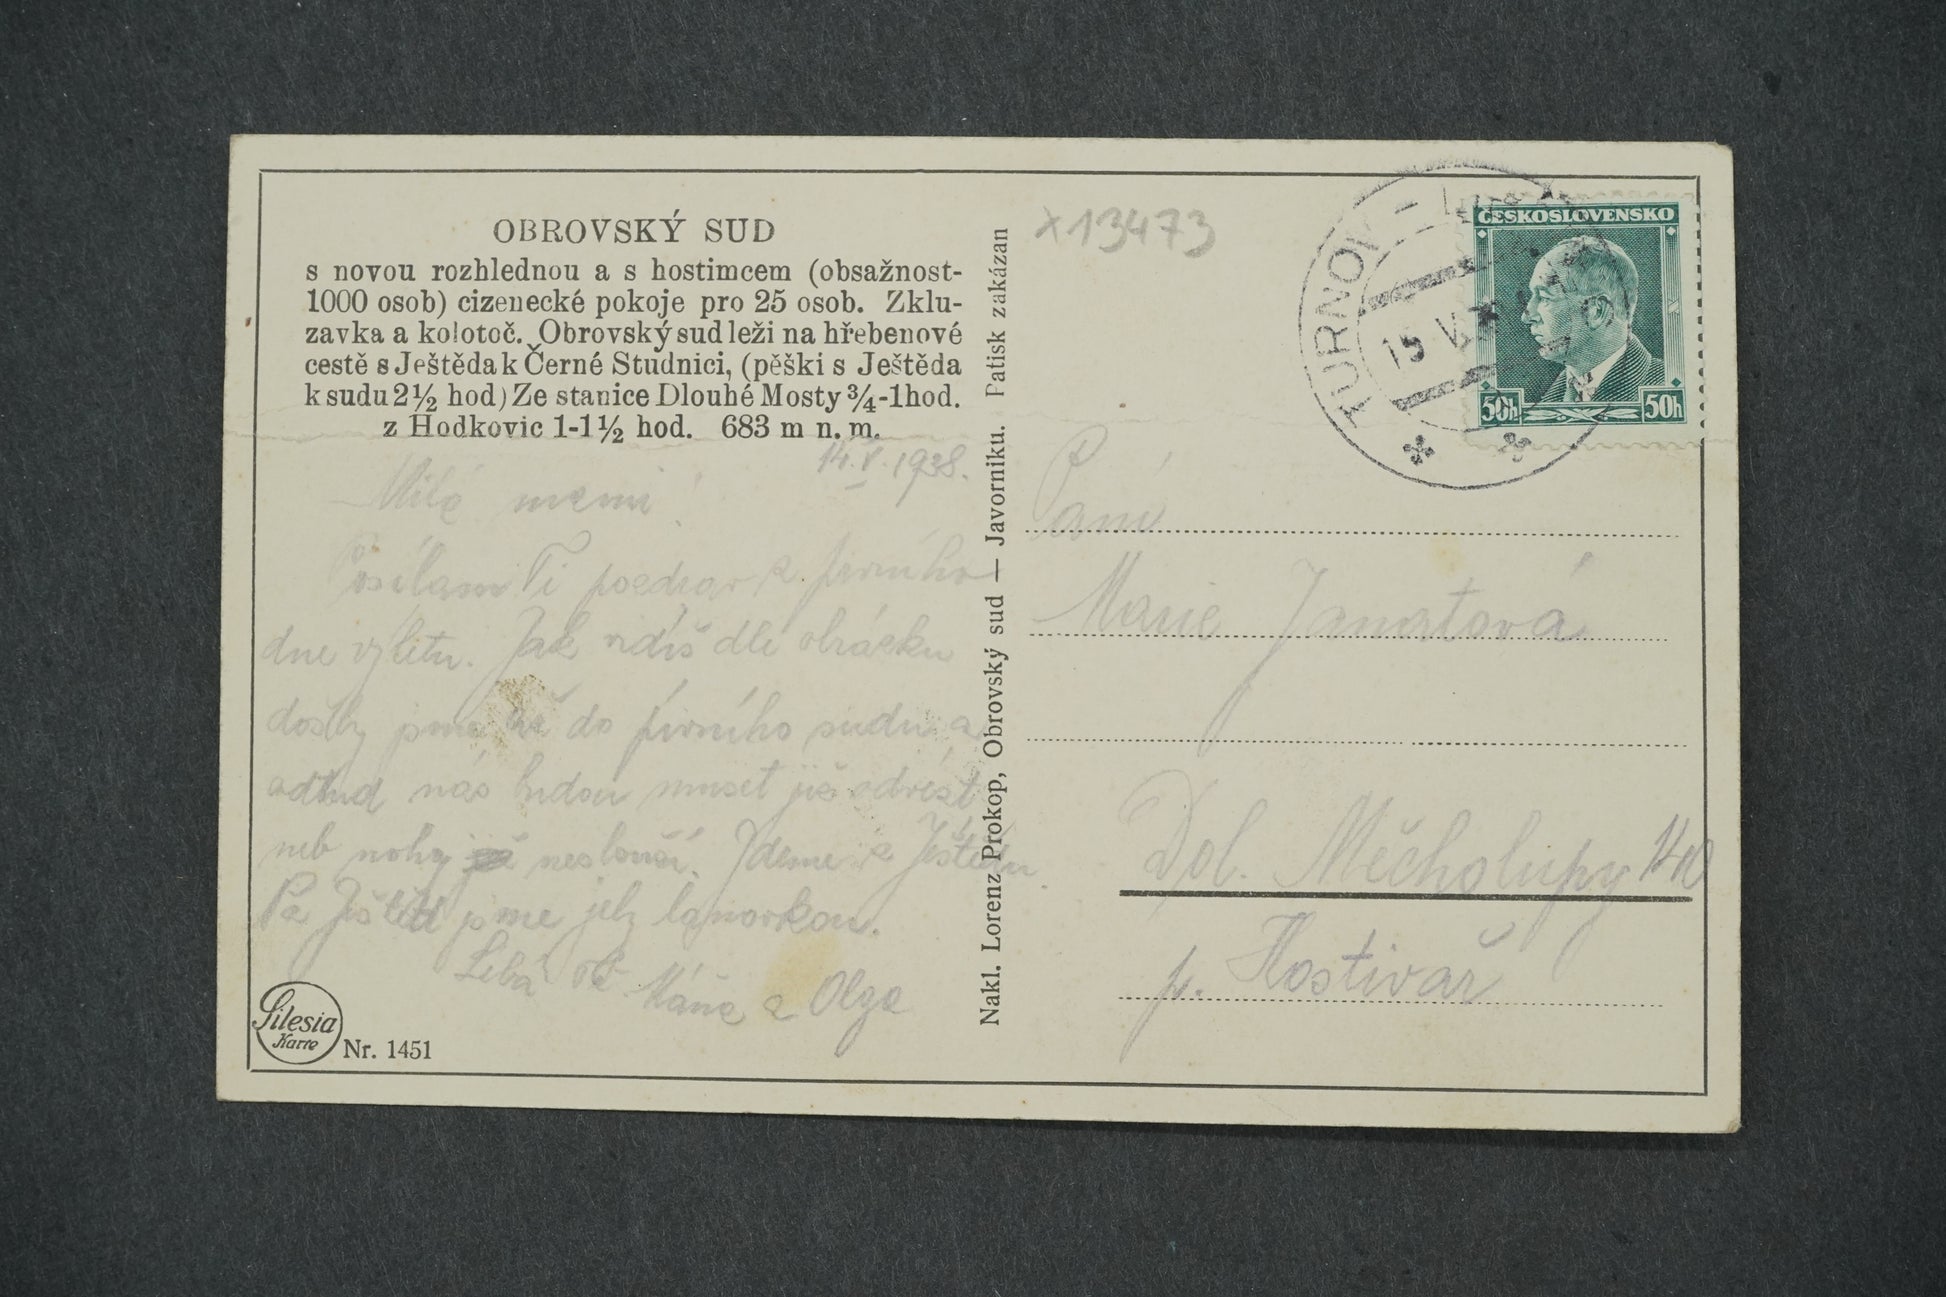 OBROVSKÝ SUD
s novou rozhlednou a s hostimcem (obsažnost-
1000 osob) cizenecké pokoje pro 25 osob. Zklu-
zavka a kolotoč. Obrovský sud leži na hřebenové
cestě s Ještěda k Černé Studnici, (pěški s Ještěda
k sudu 2½ hod) Ze stanice Dlouhé Mosty ¾-1hod.
z Hodkovic 1-1½ hod. 683 m n. m.
14.V.1938.
Milá mami!
Posílám Ti pozdrav z prvního
dne výletu. Jak vidíš dle obrázku
došly jsme až do prvního sudu a
odtud nás budou muset již odvést
neb nohy neslouží. Jdeme z Ještědu.
Na Ještěd jsme jely lanovkou.
Líbá Tě Máňa a Olga
Silesia
Karte
Nr. 1451
Nakl. Lorenz Prokop, Obrovský sud — Javorniku. Patisk zakázan
x13473
TURNOV
15 V
ČESKOSLOVENSKO
50h 50h
Paní
Marie Janatová
Dol. Měcholupy 140
p. Hostivař